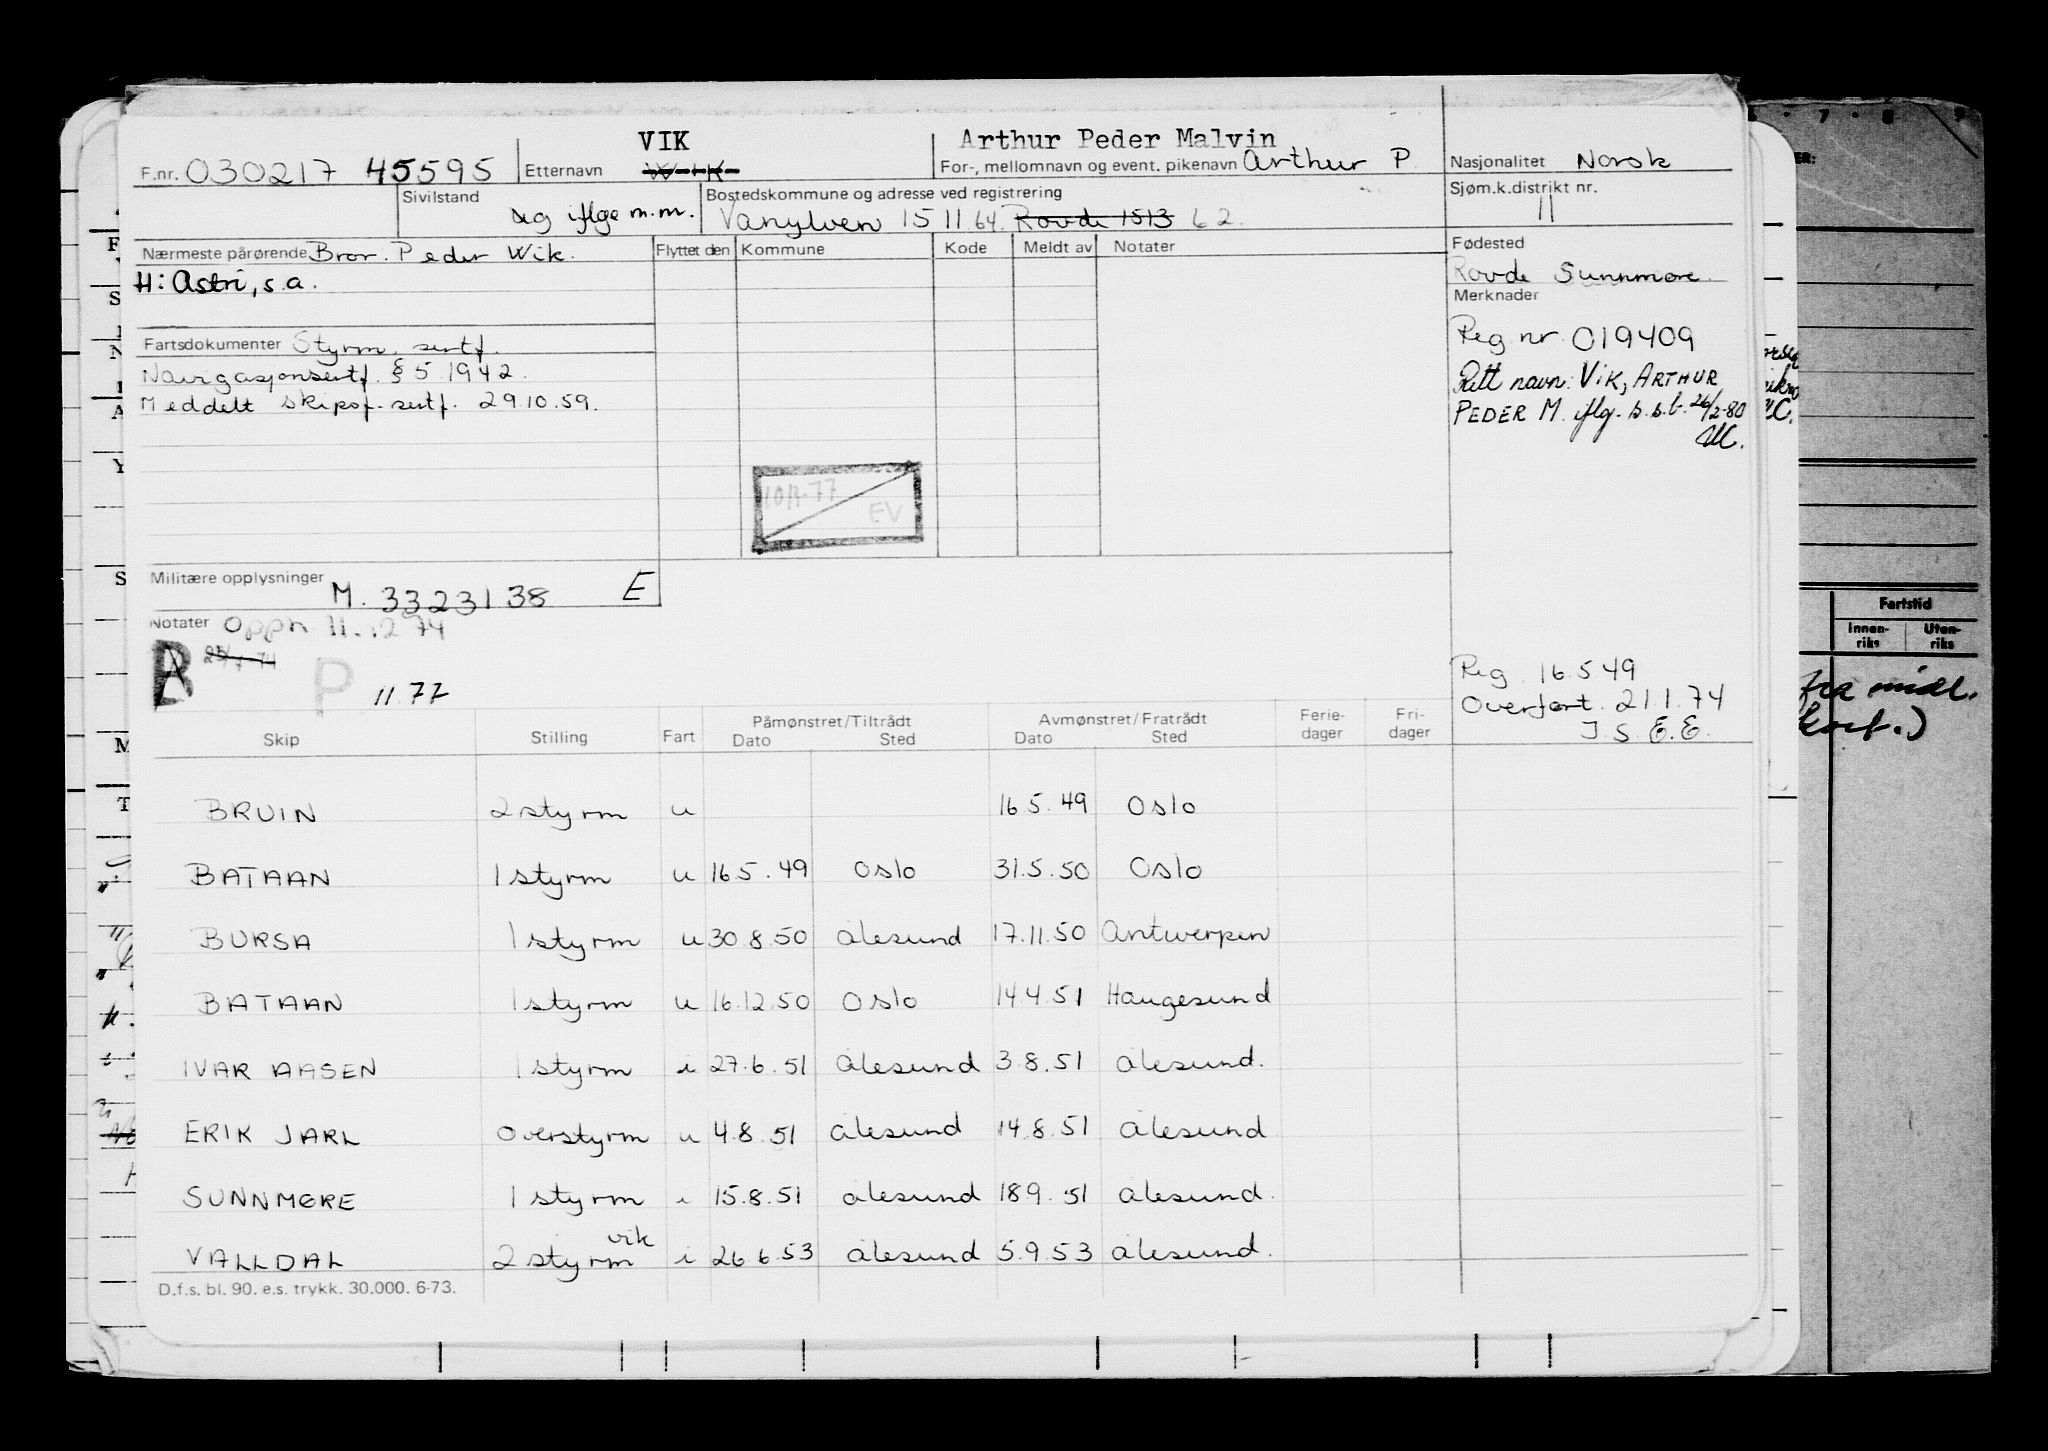 VIK Arthur Peder Malvin
F.nr. 030217 45595 Etternavn WIK For-, mellomnavn og event. pikenavn Arthur P. Nasjonalitet Norsk
Sivilstand ug iflge m.m. Bostedskommune og adresse ved registrering Sjøm.k.distrikt nr. 11
Vanylven 1511 64. Rovde 1513 62.
Nærmeste pårørende Bror. Peder Wik. Flyttet den Kommune Kode Meldt av Notater Fødested
H: Astri, s.a. Rovde Sunnmøre.
Merknader
Reg nr 019409
Fartsdokumenter Styrm. sertf.
Navigasjonsertf. § 5 1942.
Meddelt skipsf. sertf. 29.10.59.
Rett navn: VIK, ARTHUR
PEDER M. iflg. s.s.b. 26/2-80
EV
Militære opplysninger M. 3323138 E
Notater Opph 11.12 74
B P 11.77
Reg. 16.5.49
Overført. 21.1.74
J.S. E.E.
Påmønstret/Tiltrådt Avmønstret/Fratrådt Ferie- Fri-
Skip Stilling Fart Dato Sted Dato Sted dager dager
BRUIN 2 styrm u 16.5.49 Oslo
BATAAN 1 styrm u 16.5.49 Oslo 31.5.50 Oslo
BURSA 1 styrm u 30.8.50 Ålesund 17.11.50 Antwerpen
BATAAN 1 styrm u 16.12.50 Oslo 14.4.51 Haugesund
IVAR AASEN 1 styrm i 27.6.51 Ålesund 3.8.51 Ålesund.
ERIK JARL Overstyrm u 4.8.51 Ålesund 14.8.51 Ålesund
SUNNMØRE 1 styrm i 15.8.51 Ålesund 18.9.51 Ålesund.
vik
VALLDAL 2 styrm i 26.6.53 Ålesund 5.9.53 Ålesund.
D.f.s. bl. 90. e.s. trykk. 30.000. 6-73.
Fartstid
Innen- Uten-
riks riks
fra midl.
kort.)